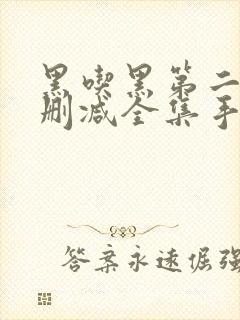 黑喫黑第二
删减全集手
答案永远倔强